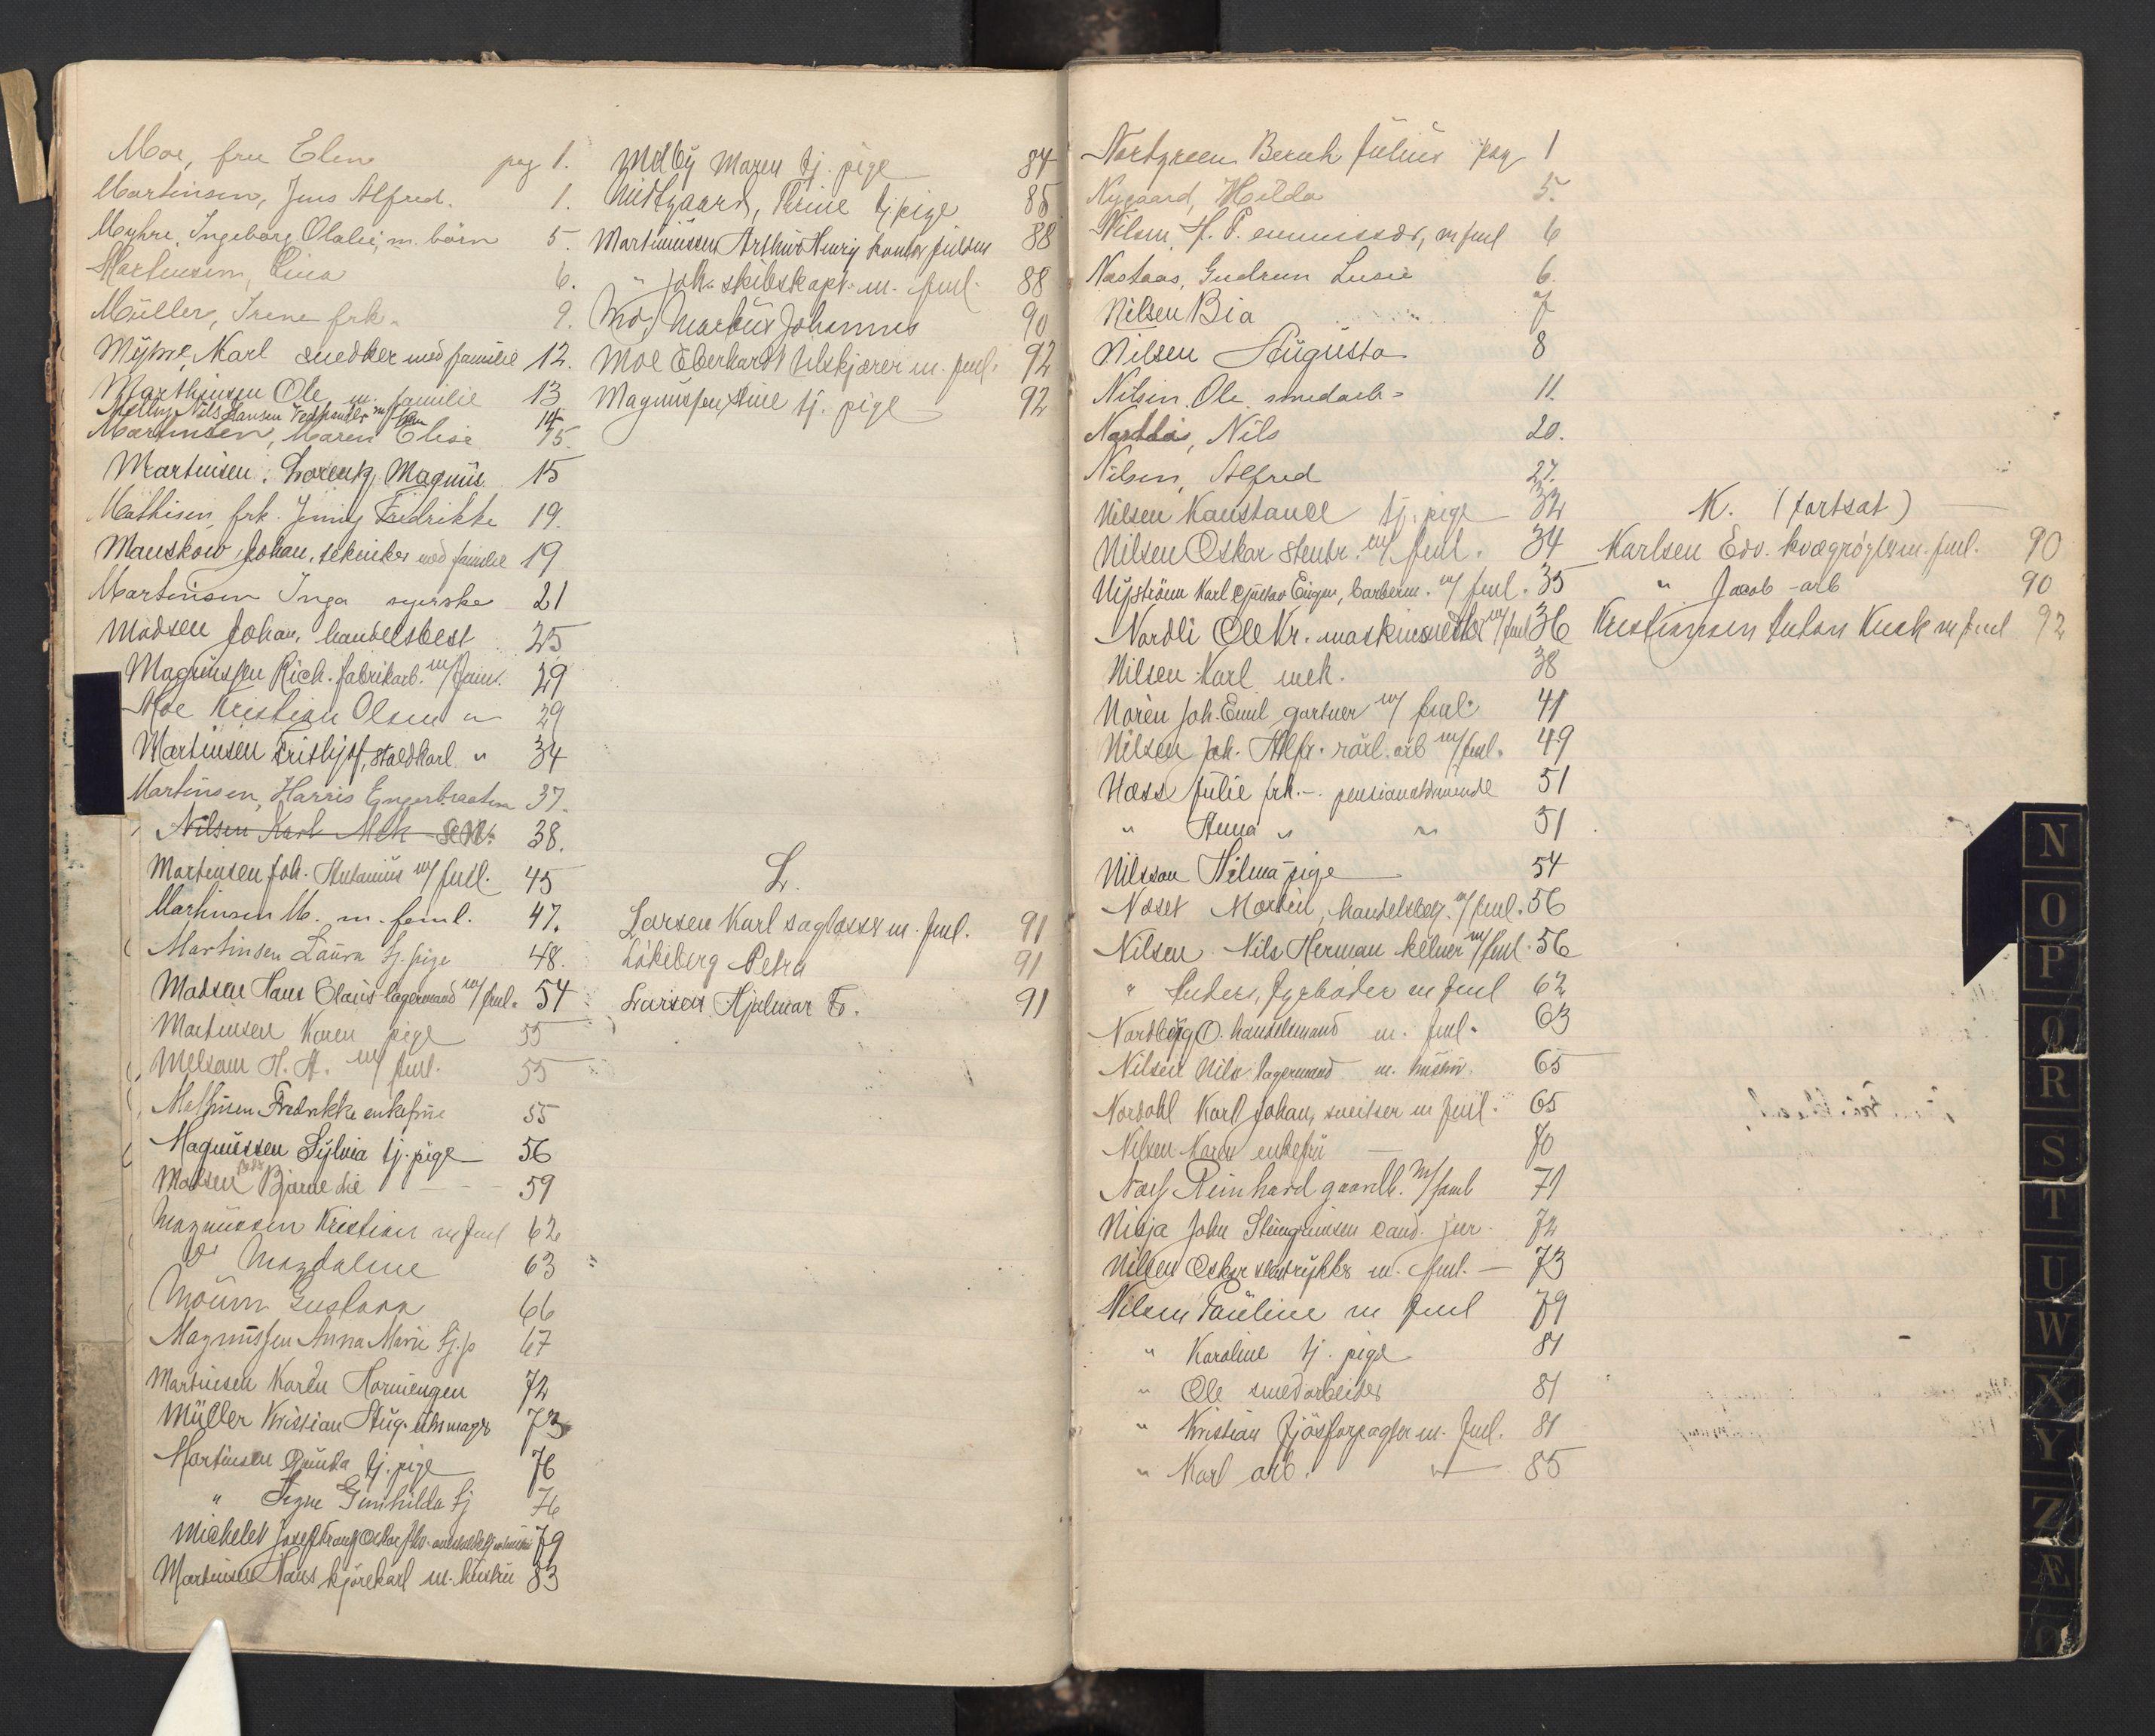 Moe, fru Elen pag 1.
Martinsen, Jens Alfred. 1.
Myhre, Ingeborg Olalie, m. børn 5.
Martinsen, Lina 6.
Müller, Irene frk. 9.
Myhre, Karl snedker med familie 12.
Marthinsen Ole m. familie 13
Melby Nils Hansen Vedhandler m/ fam 14
Martinsen, Maren Elise 15.
Martinsen, Lorentz Magnus 15
Mathisen, frk. Jenny Fredrikke 19.
Manskow Johan, tekniker med familie 19
Martinsen Inga syerske 21
Madsen Johan, handelsbest 25
Magnussen Rich. fabrikarb. m/ fam. 29
Moe Kristian Olsen " 29
Martinsen Frithjof, staldkarl " 34
Martinsen, Harris Engerbretsen 37.
Nilsen Karl Mek Se N. 38.
Martinsen Joh. Antonius m/ fml. 45
Martinsen M. m. faml. 47.
Martinsen Laura tj. pige 48.
Madsen Hans Claus lagermand m/ fml. 54
Martinsen Karen pige 55
Melsom H. A. m/ fml. 55
Mathisen Fredrikke enkefrue 55
Magnussen Sylvia tj. pige 56
Madsen Bjarne 59
Magnussen Kristian m fml 62
Do Magdalene 63
Mourn Gustava 66
Magnussen Anna Marie tj.p 67
Martinsen Karen Hornengen 72
Müller Kristian Aug. urmager 73
Martinsen Gunda tj. pige 76
" Signe Gunhilda tj 76
Michelet Josef Frantz Oskar 79
Martinsen Hans kjørekarl m. hustru 83
Melby Maren tj. pige 84
Midtgaard, Trine tj. pige 85
Martinussen Arthur Henry kontor 88
" Joh. skibskapt. m. fml. 88
Mo, Markus Johannes 90
Moe Eberhardt tilskjærer m. fml. 92
Magnussen Aine tj. pige 92
L.
Larsen Karl sagløsser m. fml. 91
Løkeberg Petra 91
Larsen Hjalmar F. 91
Nortgreen Bernh Julius pag 1
Nygaard, Hilda 5.
Nilsen, H. P. emmissær, m fml 6
Nastaas, Gudrun Lusie 6.
Nilsen Bia 7
Nilsen Augusta 8
Nilsen, Ole smedarb. 11.
Nils 20.
Nilsen, Alfred 27.
Nilsen Konstance tj. pige 32
Nilsen Oskar stentr. m/ fml. 34
Nyström Karl Gustav Eugen, barberm. m/ fml. 35
Nordli Ole Kr. maskinsnedker m/ fml 36
Nilsen Karl mek. 38
Noren Joh. Emil gartner m/ fml. 41
Nilsen Joh. Alfr. rørl. arb m/ fml. 49
Næss Julie frk. pensionatdrivende 51
" Anna " " 51
Nilsson Hilma pige 54
Næset Martin, handelsbetj. m/ fml. 56
Nilsen Nils Herman kelner m/ fml. 56
" Anders, fyrbøder m fml 62
Nordberg O. handelsmand m. fml. 63
Nilsen Nils lagermand m. hustru. 65
Nordahl Karl Johan, sveitser m fml. 65
Nilsen Karen enkefru 70
Næss Reinhard gaardb. m/ faml 71
Nisja John Steingrimsen cand. jur. 72
Nilsen Oskar stentrykker m. fml. 73
Nilsen Pauline m fml 79
" Karoline tj. pige 81
" Ole smedarbeider 81
" Kristian fjøsforpagter m. fml. 81
" Karl arb. " 85
K. (fortsat)
Karlsen Edv. kvægrøgter m. fml. 90
" Jacob arb 90
Kristiansen Anton Kusk m fml 92
N
O
P
Q
R
S
T
U
W
X
Y
Z
Æ
Ø